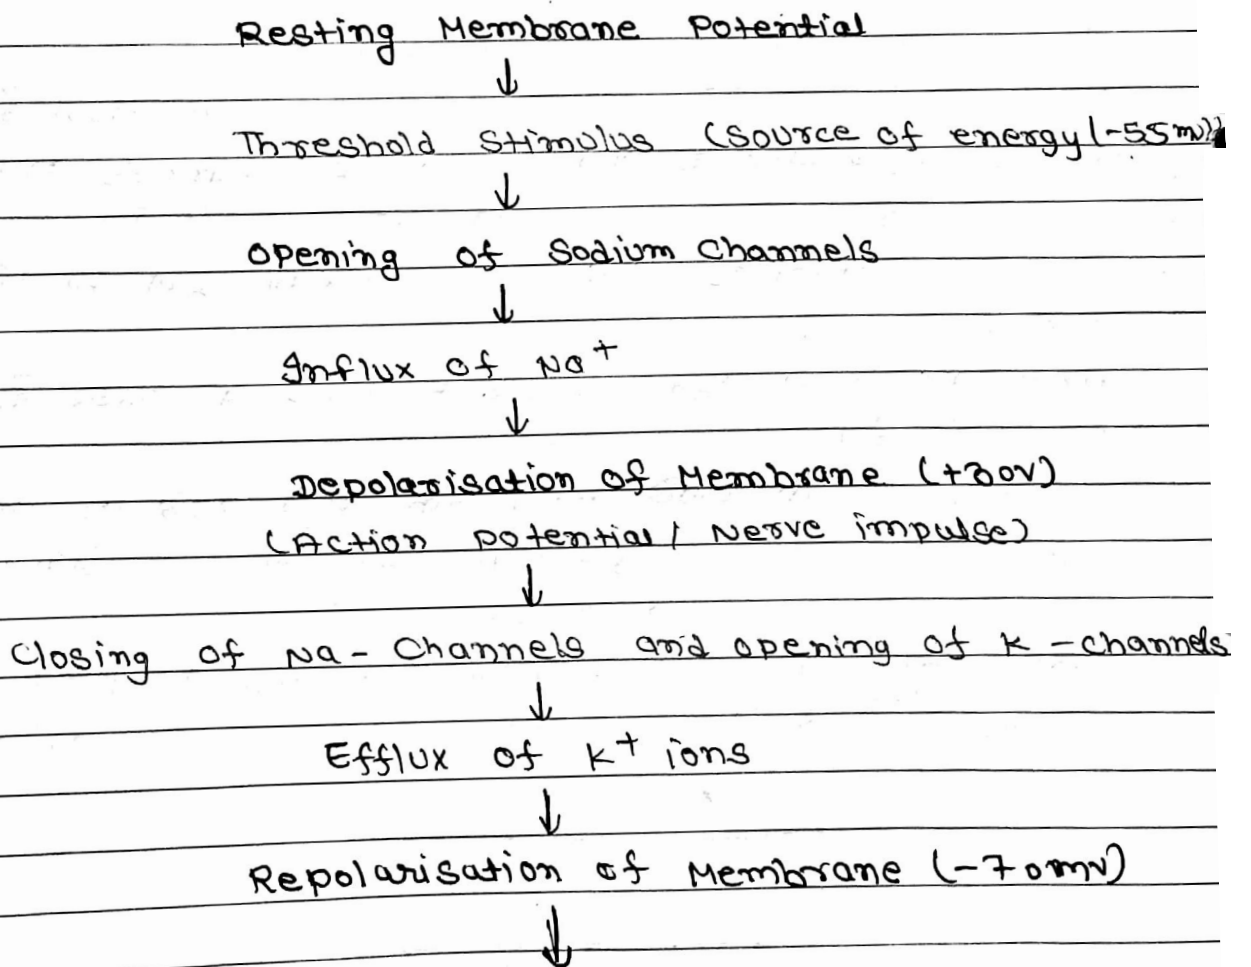 Resting Membrane Potential
↓
Threshold Stimulus (Source of energy (-55mv))
↓
Opening of Sodium Channels
↓
Influx of Na+
↓
Depolarisation of Membrane (+30v)
(Action potential / Nerve impulse)
↓
Closing of Na - Channels and opening of K - channels
↓
Efflux of K+ ions
↓
Repolarisation of Membrane (-70mv)
↓